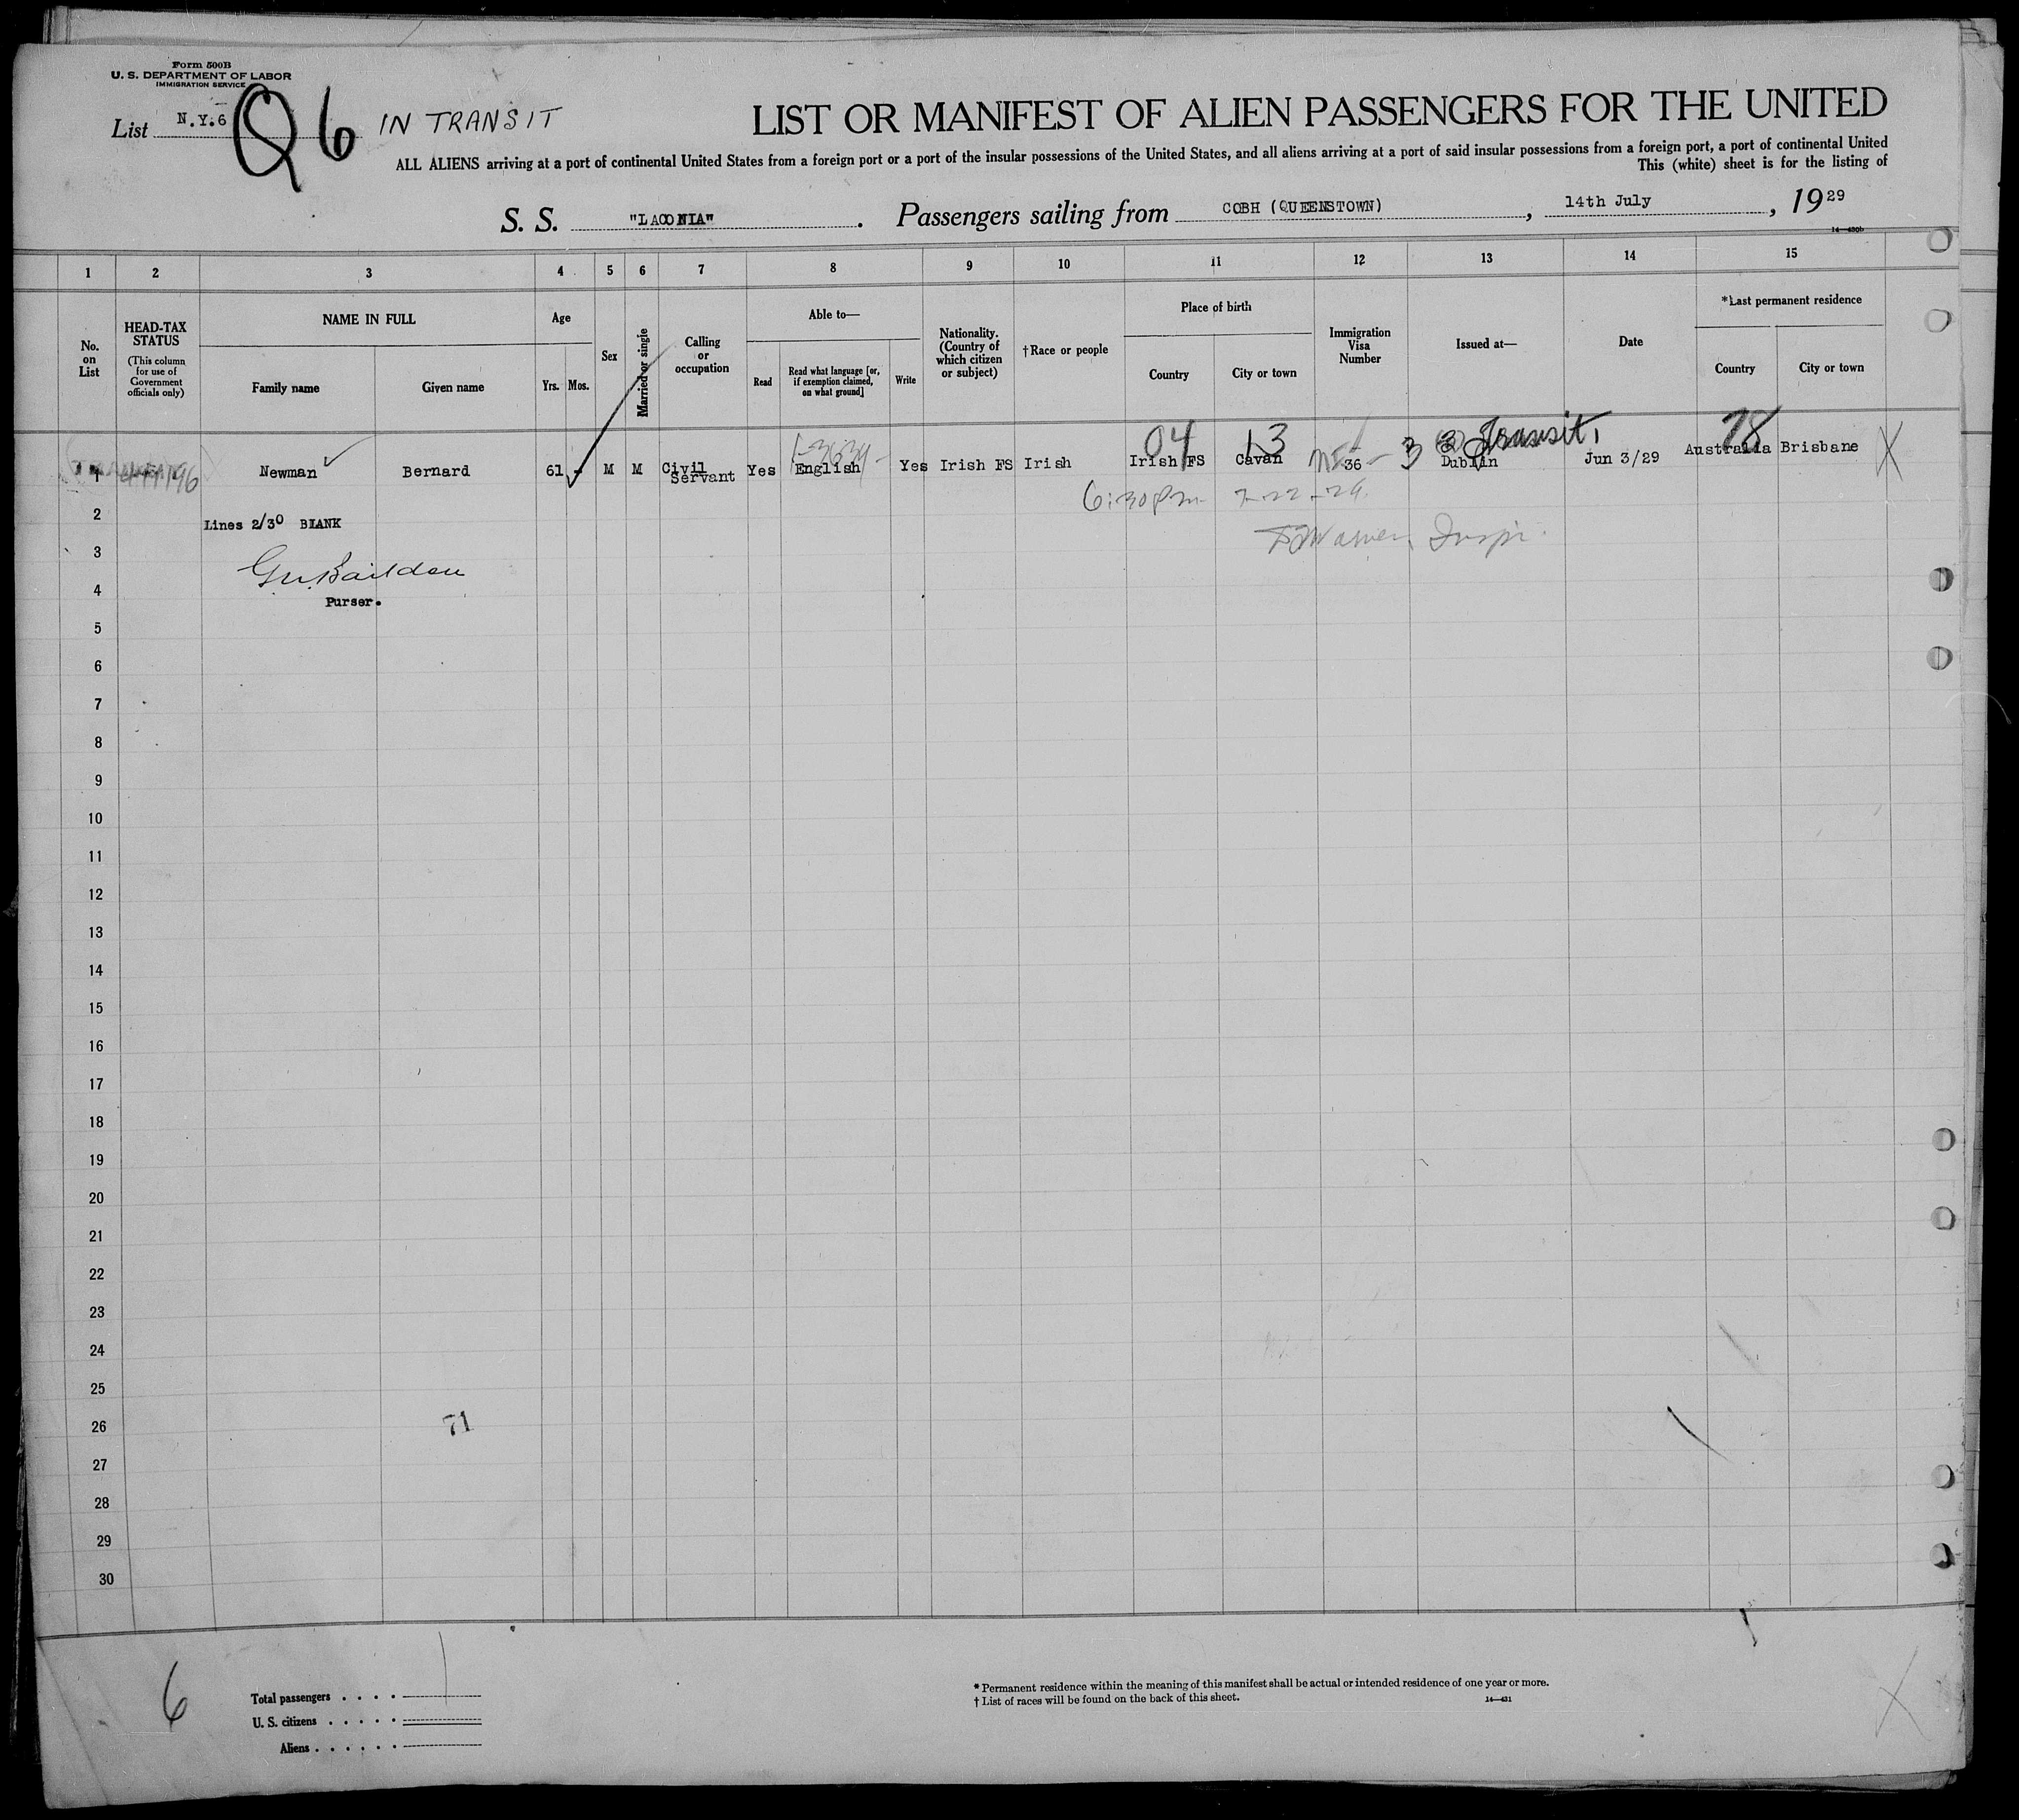 Form 500B
U. S. DEPARTMENT OF LABOR
IMMIGRATION SERVICE
List N.Y.6
Q 6 IN TRANSIT
LIST OR MANIFEST OF ALIEN PASSENGERS FOR THE UNITED
ALL ALIENS arriving at a port of continental United States from a foreign port or a port of the insular possessions of the United States, and all aliens arriving at a port of said insular possessions from a foreign port, a port of continental United
This (white) sheet is for the listing of
S. S. "LACONIA". Passengers sailing from COBH (QUEENSTOWN), 14th July, 1929
14—430b
1 2 3 4 5 6 7 8 9 10 11 12 13 14 15
No. on List
HEAD-TAX STATUS
(This column for use of Government officials only)
NAME IN FULL
Family name Given name
Age
Yrs. Mos.
Sex
Married or single
Calling or occupation
Able to—
Read
Read what language [or, if exemption claimed, on what ground]
Write
Nationality. (Country of which citizen or subject)
†Race or people
Place of birth
Country City or town
Immigration Visa Number
Issued at—
Date
*Last permanent residence
Country City or town
04 13 3 Transit 78
1 Newman Bernard 61 - M M Civil Servant Yes English Yes Irish FS Irish Irish FS Cavan 36 Dublin Jun 3/29 Australia Brisbane X
6:30pm 7-22-29
2 Lines 2/30 BLANK
3
4 Purser.
5
6
7
8
9
10
11
12
13
14
15
16
17
18
19
20
21
22
23
24
25
26 71
27
28
29
30
6
Total passengers . . . . 1
U. S. citizens . . . . .
Aliens . . . . . .
* Permanent residence within the meaning of this manifest shall be actual or intended residence of one year or more.
† List of races will be found on the back of this sheet.
14—431
X